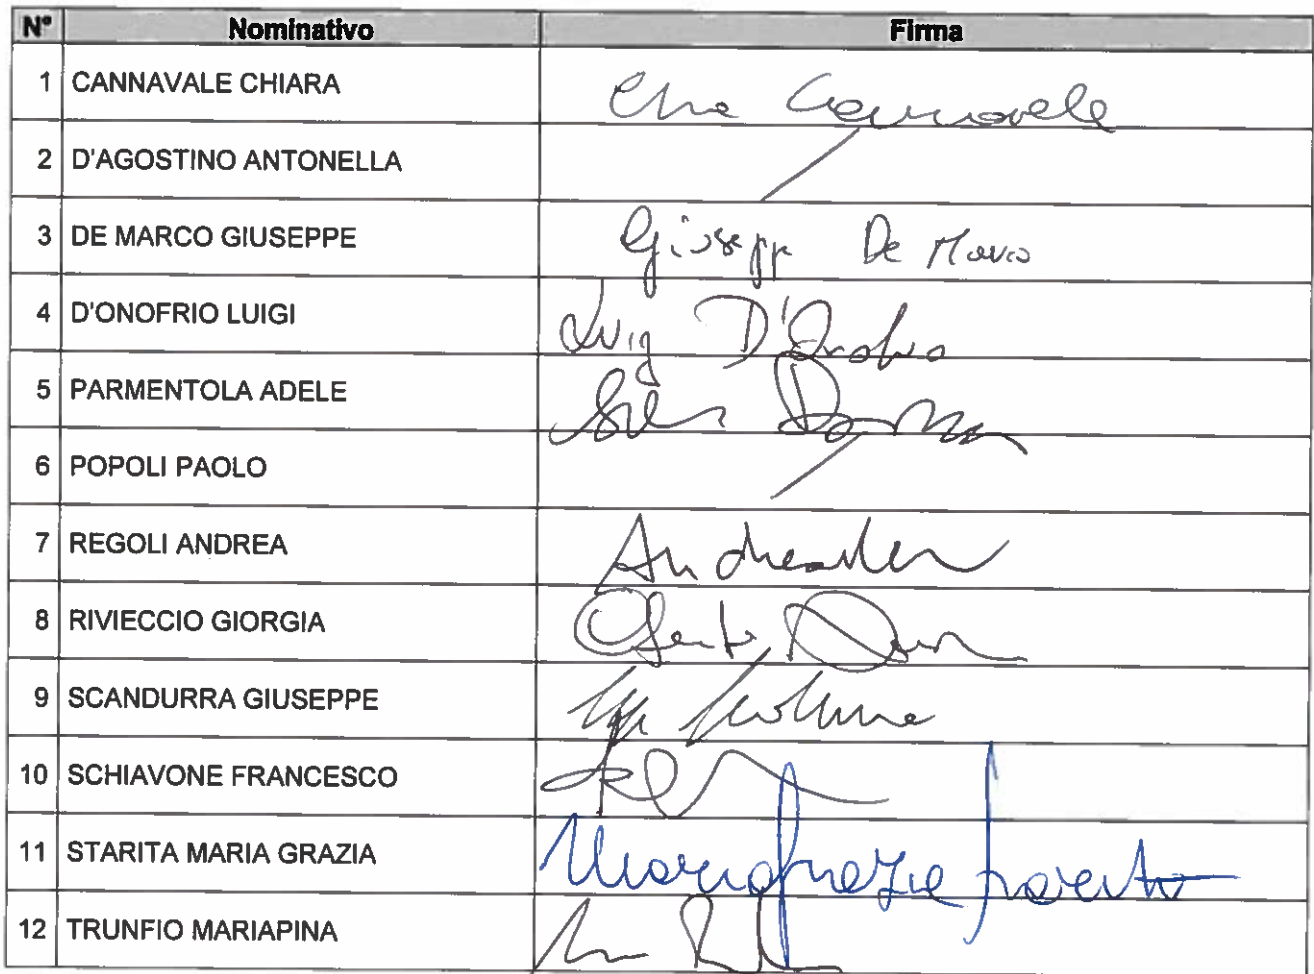 N° Nominativo Firma
1 CANNAVALE CHIARA Cannavale
2 D'AGOSTINO ANTONELLA
3 DE MARCO GIUSEPPE Giusepp De Marco
4 D'ONOFRIO LUIGI Luigi D'Onofrio
5 PARMENTOLA ADELE
6 POPOLI PAOLO
7 REGOLI ANDREA Andrea
8 RIVIECCIO GIORGIA
9 SCANDURRA GIUSEPPE
10 SCHIAVONE FRANCESCO
11 STARITA MARIA GRAZIA Mariagrazia Starita
12 TRUNFIO MARIAPINA